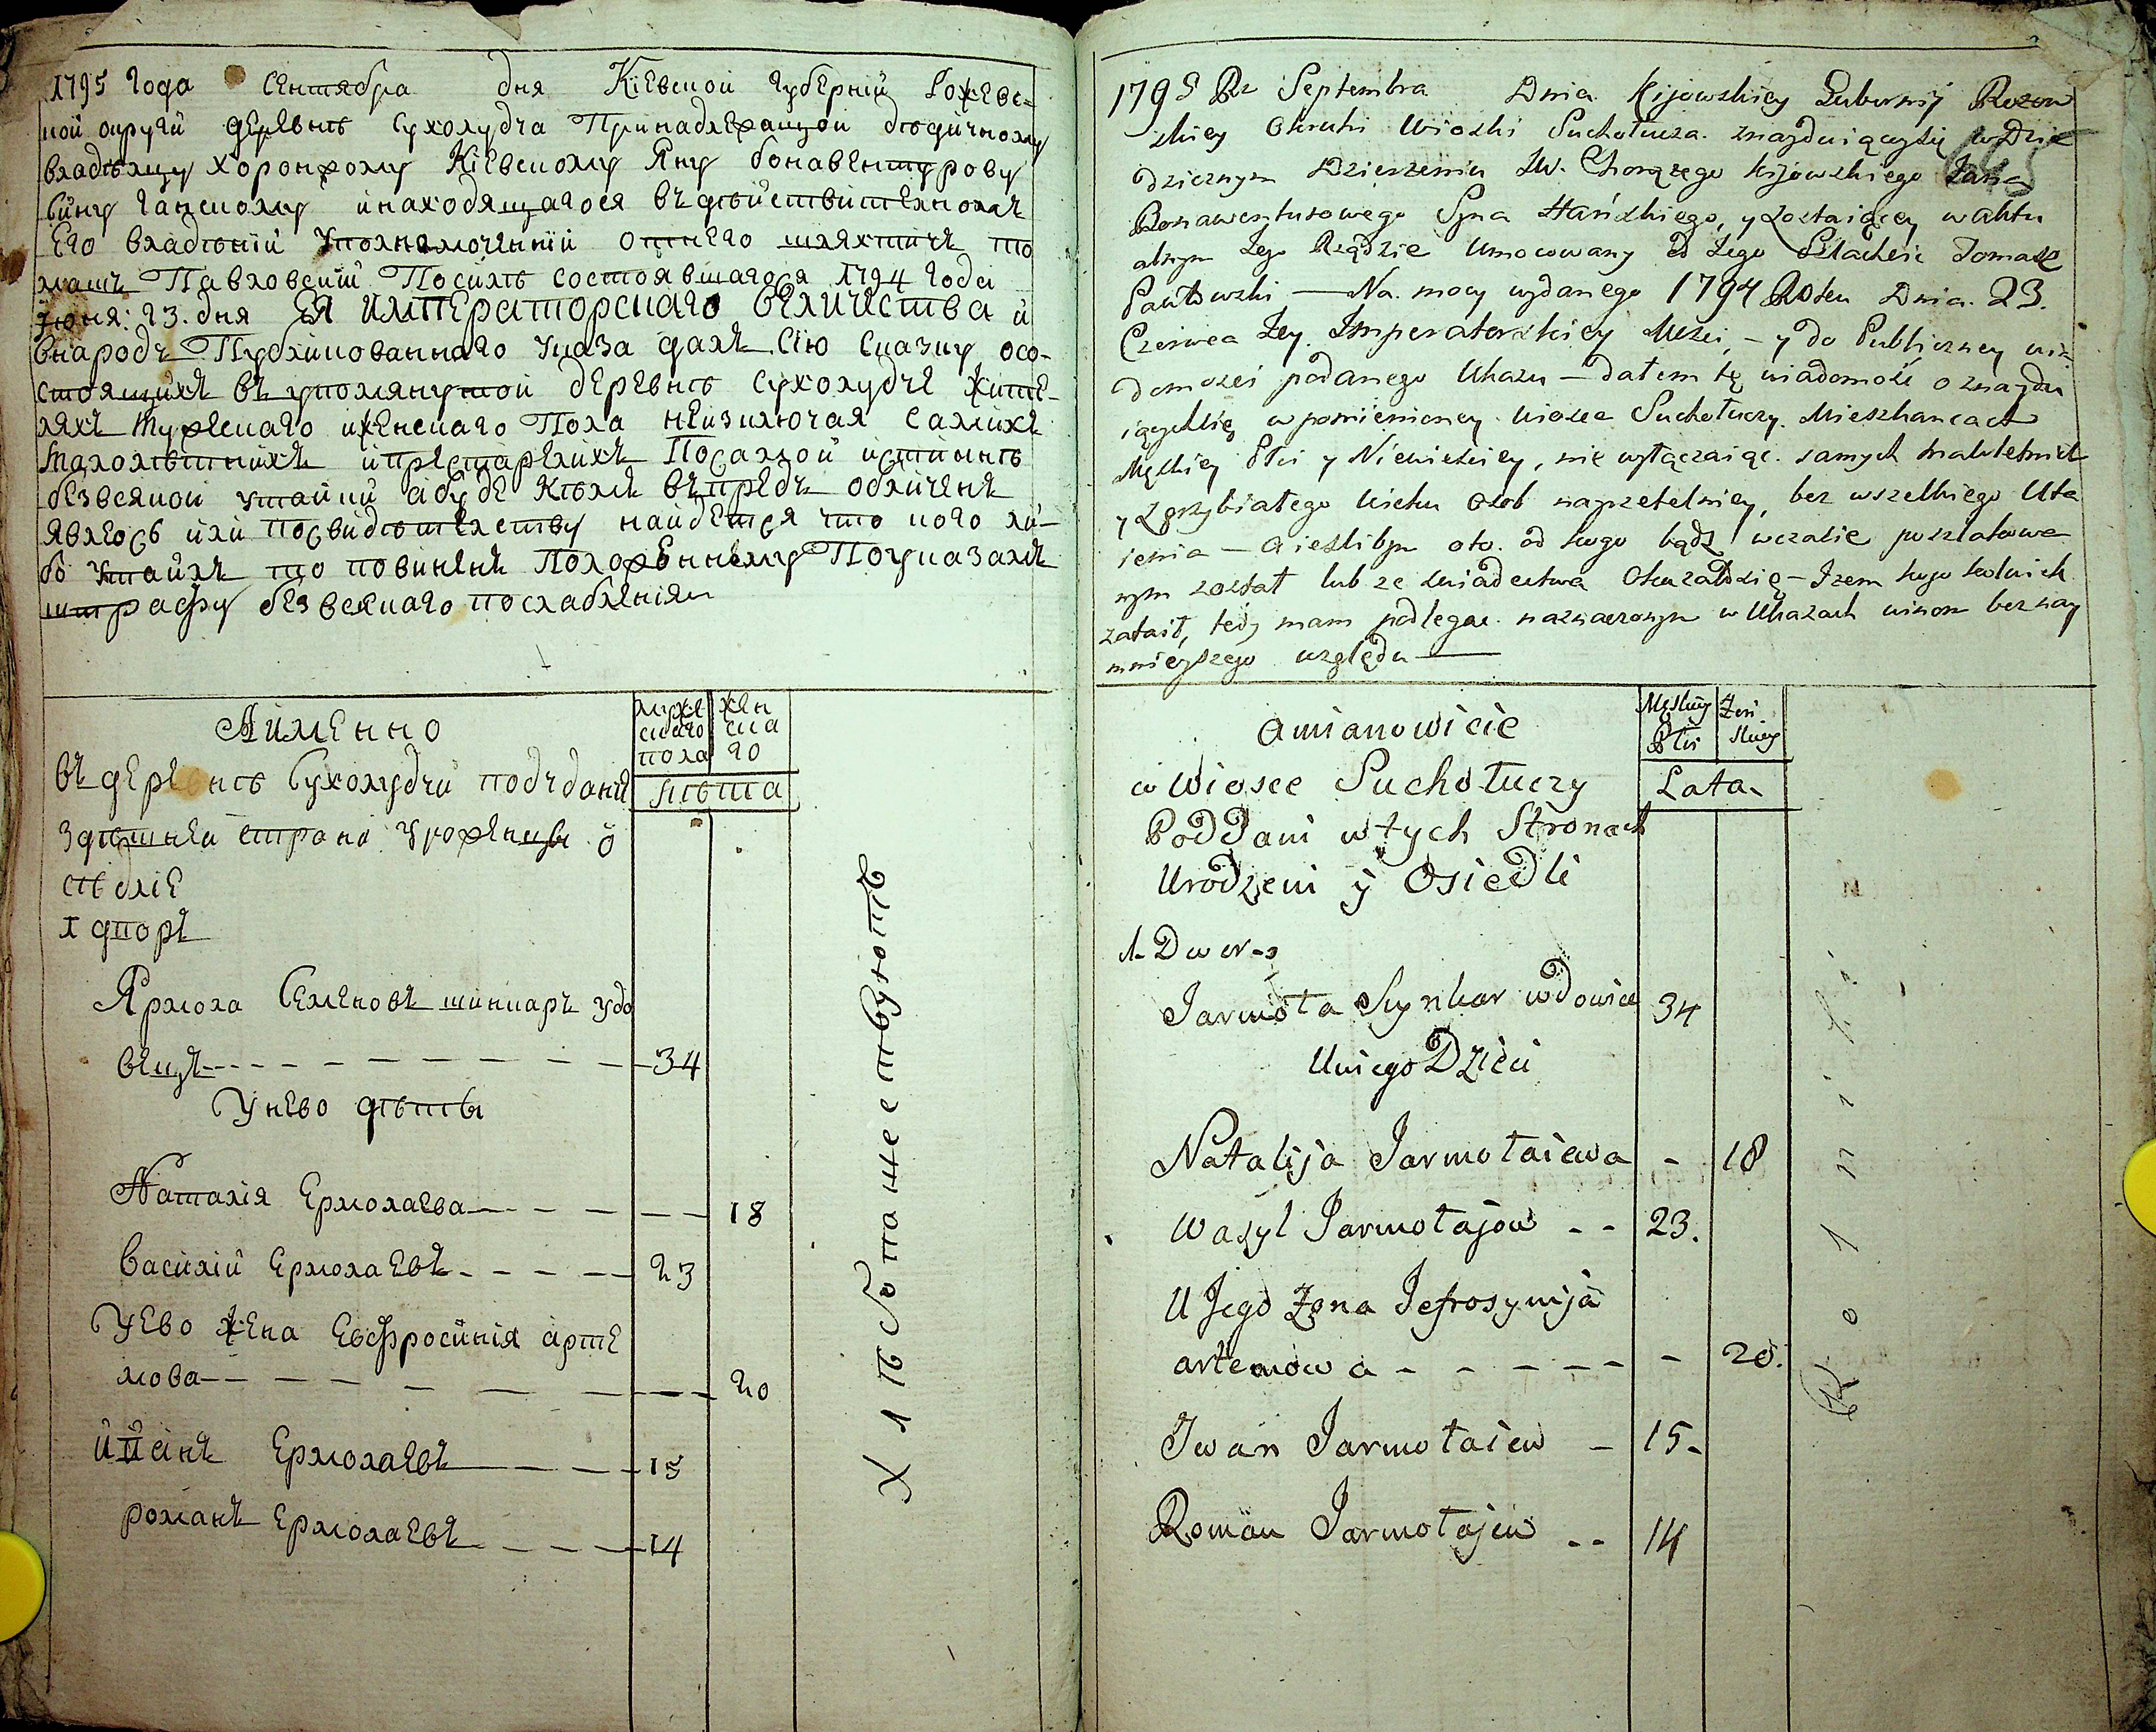 1795 года Сентября дня Кіевской губерніи Рожевс-
кой округи деревнѣ Сухолучча Принадлежащой дѣдичному
владѣлцу хоронжому Кіевскому Яну бонавентурову
Сину ганскому инаходящагося въ дѣйствителномъ
Его владѣніи Уполномоченній отнего шляхтичъ то
машъ Павловскій Посилѣ состоявшагося 1794 года
іюня: 23. дня ЕЯ ИМПЕРАТОРСКАГО ВЕЛИЧЕСТВА и
внародъ Публикованнаго Указа далъ Сію Сказку осо-
стоящихъ въ упомянутой деревнѣ Сухолучче жите-
ляхъ Мужескаго иженскаго Пола неизключая самихъ
малолѣтнихъ ипрестарелихъ Посамой истинѣ
безвсякой утайки абуде кѣмъ въпредь обличенъ
явлюсь или посвидѣтелству найдется что кого ли-
бо Утаилъ то повиненъ Положенному Поуказамъ
штрафу безвсякаго послабленія
Аименно
мужескаго пола
женскаго
въ деревнѣ Сухолуччи подъдание
лѣта
Здѣшней страни Урожинцы о
сѣдліе
1 дворъ
Ярмола Семеновъ шинкаръ удо
вецъ 34
Унево дѣты
Наталія Ермолаева 18
Василій Ермолаевъ 23
Уево жена Евфросинія арте
мова 20
Иванъ Ермолаевъ 15
романъ Ермолаевъ 14
1795 Rz Septembra Dnia Kijowskiey Gubernij Rozow
skiey Okruhi Wioski Suchołucza znayduiącysię w Dzie
dzicznym Dzierzeniu JW. Chorązego Kijowskiego Jana
Bonawenturowego Syna Hańskiego, y zostaiącey w aktu
alnym Jego Rządzie Umocowany od Jego Szlachcic Tomasz
Pawłowski — Na mocy wydanego 1794 Roku Dnia 23.
Czerwca Jey Imperatorskiey Mści, — y do Publiczney wia
domości podanego Ukazu — dałem tę wiadomość o znaydu
iącychsię w pomienioney Wiosce Suchołuczy Mieszkancach
Męskiey Płci y Niewieściey, nie wyłączaiąc samych małoletnich
y Zgrzybiałego Wieku Osob nayrzetelniey, bez wszelkiego Uta
ienia — a ieslibym oto od kogo bądź wczasie poszlakowa
nym został lub ze świadectwa Okazałosię — Izem kogo kolwiek
zataił, tedy mam podlegac naznaczonym w Ukazach winom bez nay
mnieyszego względu
amianowicie
Męskiey Płci
Żeń skiey
w Wiosce Suchołuczy
Lata
Poddani w tych Stronach
Urodzeni y Osiedli
1. Dwor
Jarmoła Szynkar wdowiec 34
Uniego Dzieci
Natalija Jarmołaiewa - 18
Wasyl Jarmołajow - - 23.
U Jego Zona Jefrosynija
artemowa - - - - - - 20.
Iwan Jarmołaiew - 15-
Roman Jarmołajew - - 14
Rolniki